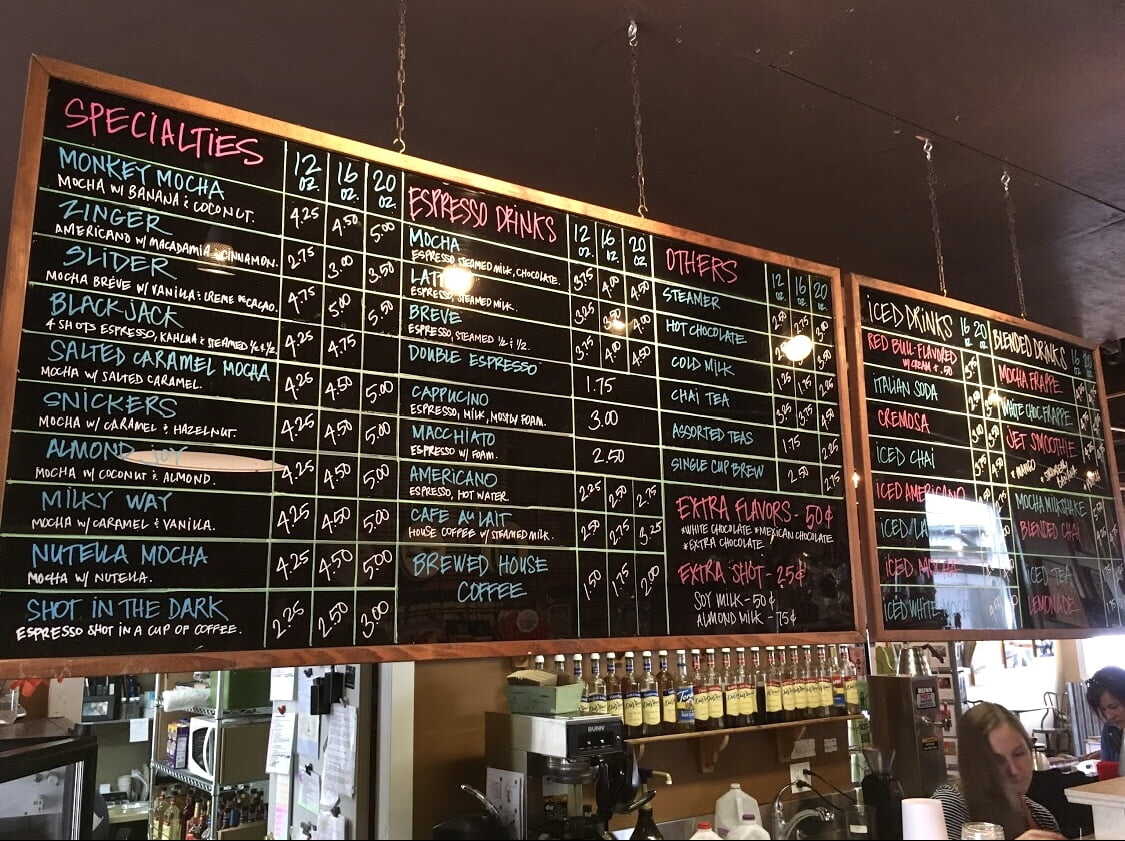 SPECIALTIES 12 OZ. 16 OZ. 20 OZ.
MONKEY MOCHA
MOCHA W/ BANANA & COCONUT. 4.25 4.50 5.00
ZINGER
AMERICANO W/ MACADAMIA & CINNAMON. 2.75 3.00 3.50
SLIDER
MOCHA BRÉVE W/ VANILLA & CREME DE CACAO. 4.75 5.00 5.50
BLACKJACK
4 SHOTS ESPRESSO, KAHLUA & STEAMED ½ & ½. 4.25 4.75
SALTED CARAMEL MOCHA
MOCHA W/ SALTED CARAMEL. 4.25 4.50 5.00
SNICKERS
MOCHA W/ CARAMEL & HAZELNUT. 4.25 4.50 5.00
ALMOND JOY
MOCHA W/ COCONUT & ALMOND. 4.25 4.50 5.00
MILKY WAY
MOCHA W/ CARAMEL & VANILLA. 4.25 4.50 5.00
NUTELLA MOCHA
MOCHA W/ NUTELLA. 4.25 4.50 5.00
SHOT IN THE DARK
ESPRESSO SHOT IN A CUP OF COFFEE. 2.25 2.50 3.00
ESPRESSO DRINKS 12 OZ. 16 OZ. 20 OZ.
MOCHA
ESPRESSO, STEAMED MILK, CHOCOLATE. 3.75 4.00 4.50
ESPRESSO, STEAMED MILK. 3.25 4.00
BREVE
ESPRESSO, STEAMED ½ & ½. 3.75 4.00 4.50
DOUBLE ESPRESSO 1.75
CAPPUCINO
ESPRESSO, MILK, MOSTLY FOAM. 3.00
MACCHIATO
ESPRESSO W/ FOAM. 2.50
AMERICANO
ESPRESSO, HOT WATER. 2.25 2.50 2.75
CAFE AU LAIT
HOUSE COFFEE W/ STEAMED MILK. 2.50 2.75 3.25
BREWED HOUSE
COFFEE 1.50 1.75 2.00
OTHERS 12 OZ. 16 OZ. 20 OZ.
STEAMER 2.50 2.75 3.00
HOT CHOCOLATE
COLD MILK 1.25 1.75 2.25
CHAI TEA 3.25 3.75
ASSORTED TEAS 1.75 2.25
SINGLE CUP BREW 2.50 2.75
EXTRA FLAVORS - 50¢
*WHITE CHOCOLATE *MEXICAN CHOCOLATE
*EXTRA CHOCOLATE
EXTRA SHOT - 25¢
SOY MILK - 50¢
ALMOND MILK - 75¢
ICED DRINKS 16 OZ. 20 OZ.
RED BULL-FLAVORED
W/ CREAM + .50
ITALIAN SODA
CREMOSA
ICED CHAI
ICED AMERICANO
ICED
ICED MOCHA
ICED WHITE
BLENDED DRINKS 16 20
MOCHA FRAPPE
WHITE CHOC FRAPPE
JET SMOOTHIE
* MANGO
MOCHA MILKSHAKE
BLENDED CHAI
ICED TEA
LEMONADE
BUNN
Torani